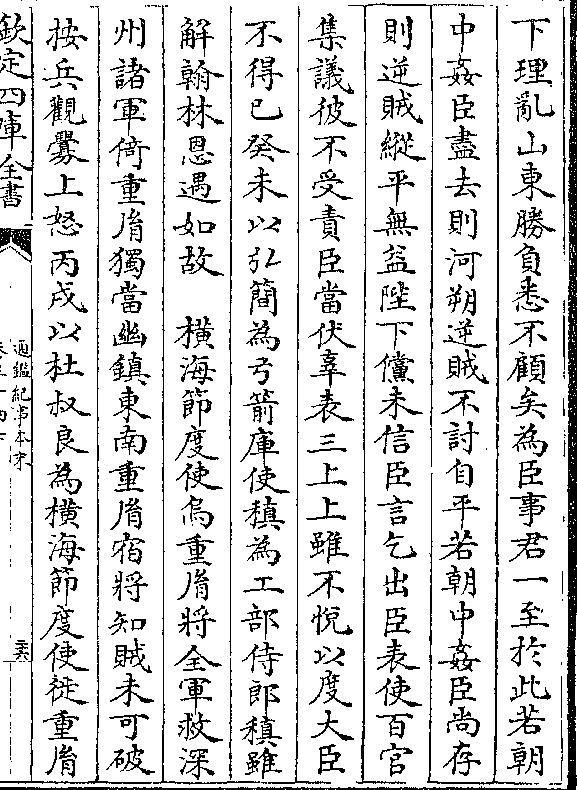 下理亂山東勝負悉不顧矣為臣事君一至於此若朝
中姦臣盡去則河朔逆賊不討自平若朝中姦臣尚存
則逆賊縱平無益陛下儻未信臣言乞出臣表使百官
集議彼不受責臣當伏辜表三上上雖不悦以度大臣
不得已癸未以弘簡為弓箭庫使稹為工部侍郎稹雖
解翰林恩遇如故　橫海節度使烏重𦙍將全軍救深
州諸軍倚重𦙍獨當幽鎮東南重𦙍宿將知賊未可破
按兵觀釁上怒丙戌以杜叔良為橫海節度使徙重𦙍
欽定四庫全書
通鑑紀事本末